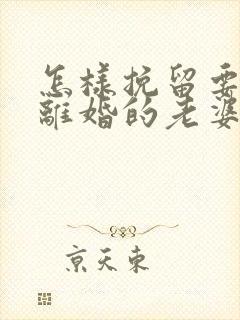 怎樣挽留要
離婚的老婆
京天東